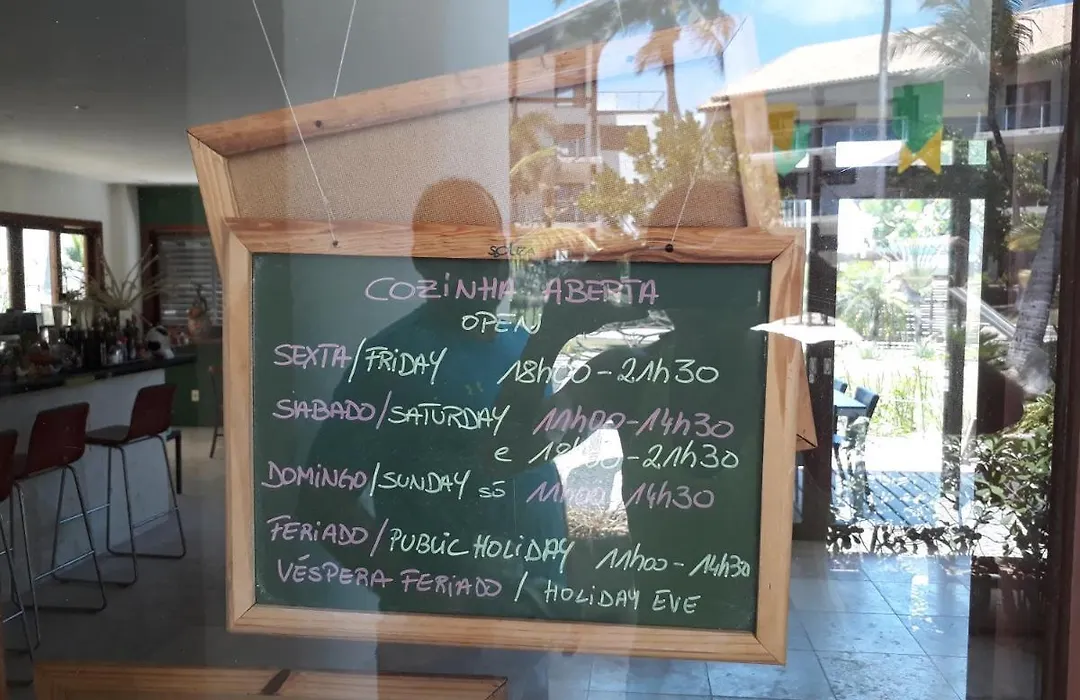 COZINHA ABERTA
OPEN
SEXTA/FRIDAY 18h00-21h30
SABADO/SATURDAY 11h00-14h30
e 18h30-21h30
DOMINGO/SUNDAY SÓ 11h00-14h30
FERIADO/PUBLIC HOLIDAY 11h00-14h30
VÉSPERA FERIADO / HOLIDAY EVE